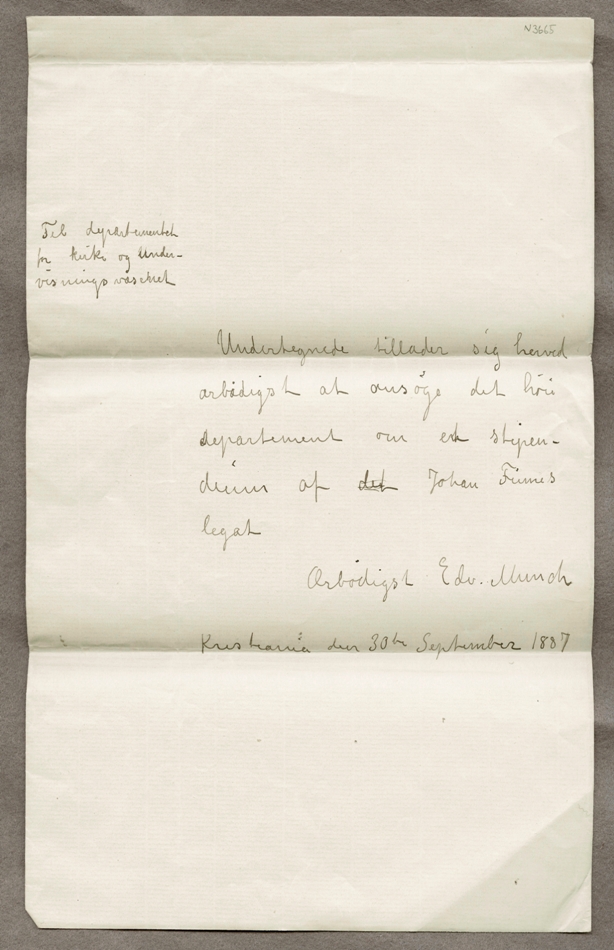 N3665
Til departementet
for kirke og Under-
visningsvæsenet
Undertegnede tillader sig herved
ærbødigst at ansøge det høie
departement om et stipen-
dium af det Johan Finnes
legat
Ærbødigst Edv. Munch
Kristiania den 30te September 1887